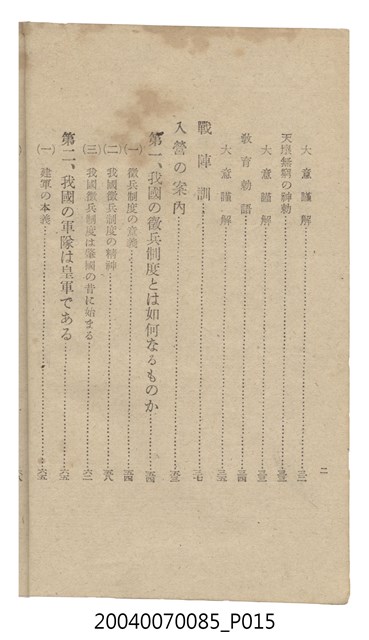 大意謹解
天壤無窮の神勅
大意謹解
敎育勅語
大意謹解
戰陣訓
入營の案內
第一、我國の徵兵制度とは如何なるものか
(一) 徵兵制度の意義
(二) 我國徵兵制度の精神
(三) 我國徵兵制度は肇國の昔に始まる
第二、我國の軍隊は皇軍である
(一) 建軍の本義
二
20040070085_P015